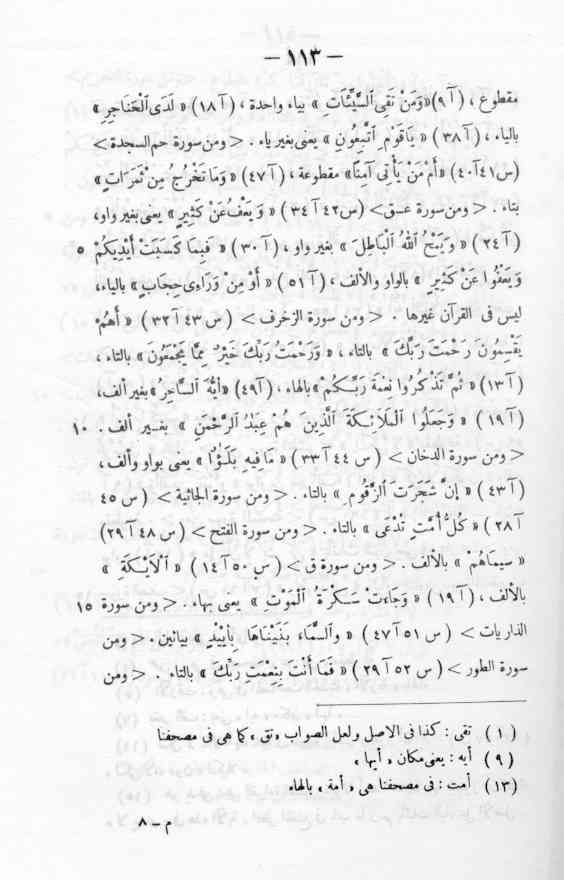 — ١١٣ —
مقطوع ، (آ ٩) « وَمَنْ تَقِى ٱلسَّيِّئَاتِ » بياء واحدة ، (آ ١٨) « لَدَى ٱلْحَنَاجِرِ »
بالياء ، (آ ٣٨) « يَاقَوْمِ ٱتَّبِعُونِ » يعنى بغير ياء . < ومن سورة حم السجدة >
(س ٤١ آ ٤٠) « أَمْ مَنْ يَأْتِى آمِناً » مقطوعة ، (آ ٤٧) « وَمَا تَخْرُجُ مِنْ ثَمَرَاتٍ »
بتاء . < ومن سورة عسق > (س ٤٢ آ ٣٤) « وَيَعْفُ عَنْ كَثِيرٍ » يعنى بغير واو،
(آ ٢٤) « وَيَمْحُ ٱللهُ ٱلْبَاطِلَ » بغير واو ، (آ ٣٠) « فَبِمَا كَسَبَتْ أَيْدِيكُمْ ٥
وَيَعْفُوا عَنْ كَثِيرٍ » بالواو والألف ، (آ ٥١) « أَوْ مِنْ وَرَاءِى حِجَابٍ » بالياء،
ليس فى القرآن غيرها . < ومن سورة الزخرف > (س ٤٣ آ ٣٢) « أَهُمْ
يَقْسِمُونَ رَحْمَتَ رَبِّكَ » بالتاء ، « وَرَحْمَتُ رَبِّكَ خَيْرٌ مِمَّا يَجْمَعُونَ » بالتاء ،
(آ ١٣) « ثُمَّ تَذْكُرُوا نِعْمَةَ رَبِّكُمْ » بالهاء ، (آ ٤٩) « أَيُّهَ ٱلسَّاحِرُ » بغير ألف،
(آ ١٩) « وَجَعَلُوا ٱلْمَلَائِكَةَ ٱلَّذِينَ هُمْ عِبَدُ ٱلرَّحْمَنِ » بغير ألف . ١٠
< ومن سورة الدخان > (س ٤٤ آ ٣٣) « مَا فِيهِ بَلَـٰؤُا » يعنى بواو وألف،
(آ ٤٣) « إِنَّ شَجَرَتَ ٱلزَّقُومِ » بالتاء . < ومن سورة الجاثية > (س ٤٥
آ ٢٨) « كُلُّ أُمَّتٍ تُدْعَى » بالتاء . < ومن سورة الفتح > (س ٤٨ آ ٢٩)
« سِيمَاهُمْ » بالألف . < ومن سورة ق > (س ٥٠ آ ١٤) « ٱلْأَيْكَةِ »
بالألف ، (آ ١٩) « وَجَاءَتْ سَكْرَةُ ٱلْمَوْتِ » يعنى بهاء . < ومن سورة ١٥
الذاريات > (س ٥١ آ ٤٧) « وَٱلسَّمَاءَ بَنَيْنَاهَا بِأَيْيْدٍ » بيائين . < ومن
سورة الطور > (س ٥٢ آ ٢٩) « فَمَا أَنْتَ بِنِعْمَتِ رَبِّكَ » بالتاء . < ومن
(١) تقى : كذا فى الاصل ولعل الصواب « تق » كما هى فى مصحفنا
(٩) أيه : يعنى مكان « أيها »
(١٣) أمت : فى مصحفنا هى « أمة » بالهاء
م – ٨